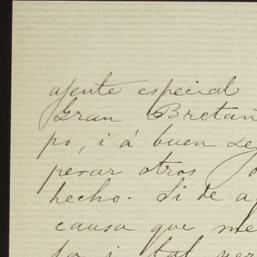 ajente especial
Gran Bretañ
po, i á buen
perar otros
hecho. Si de a
causa que me